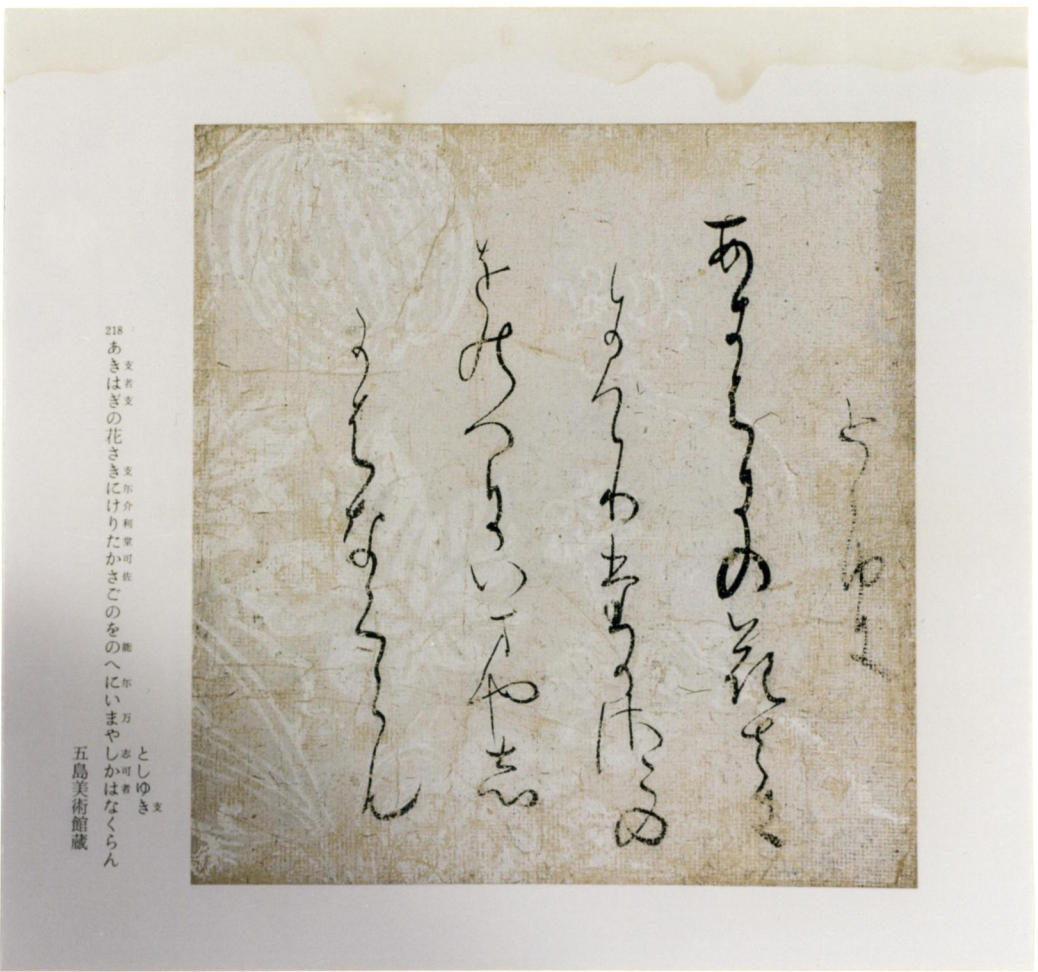 としゆき
あきはきの花さき
にけりたかさこの
をのへにいまやし
かはなくらん
支
としゆき
支者支 支尓介利堂可佐 能 尓 万 志可者
218 あきはぎの花さきにけりたかさごのをのへにいまやしかはなくらん
五島美術館蔵